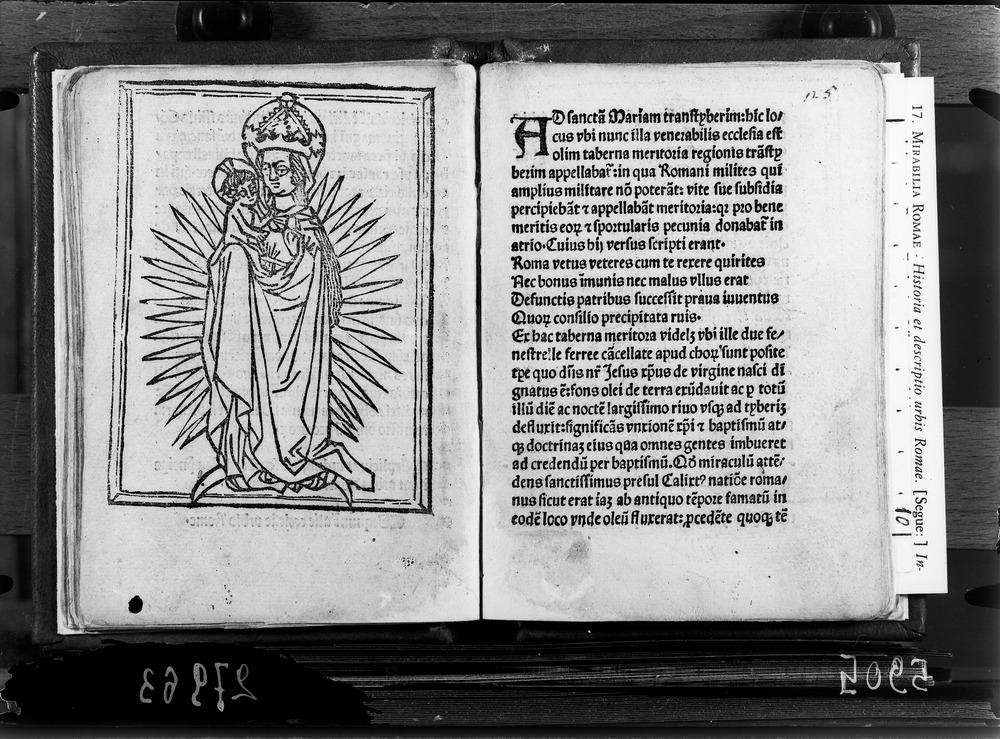 125
AD sanctā Mariam transtyberim: hic lo/
cus vbi nunc illa venerabilis ecclesia est
olim taberna meritoria regionis trāsty
berim appellabat᷑: in qua Romani milites qui
amplius militare nō poterāt: vite sue subsidia
percipiebāt ⁊ appellabāt meritoria: qꝛ pro bene
meritis eoꝝ ⁊ sportularis pecunia donabat᷑ in
atrio. Cuius hij versus scripti erant.
Roma vetus veteres cum te rexere quirites
Nec bonus īmunis nec malus vllus erat
Defunctis patribus successit praua iuuentus
Quoꝝ consilio precipitata ruis.
Ex hac taberna meritoza videlꝫ vbi ille due fe/
nestrelle ferree cācellate apud choꝝ sunt posite
tpe quo dn̄s nr̄ Jesus xp̄us de virgine nasci di
gnatus ē: fons olei de terra exūdauit ac ꝑ totū
illū diē ac noctē largissimo riuo vsqꝫ ad tyberiꝫ
defluxit: significās vnxionē xp̄i ⁊ baptismū at/
qꝫ doctrinaꝫ eius qua omnes gentes imbueret
ad credendū per baptismū. Qḋ miraculū attē/
dens sanctissimus presul Calixtꝰ natiōe roma/
nus sicut erat iaꝫ ab antiquo tēpore famatū in
eodē loco vnde oleū fluxerat: ꝓcedēte quoqꝫ tē
17. MIRABILIA ROMAE - Historia et descriptio urbis Romae. [Segue:] In-
10
27963
5905